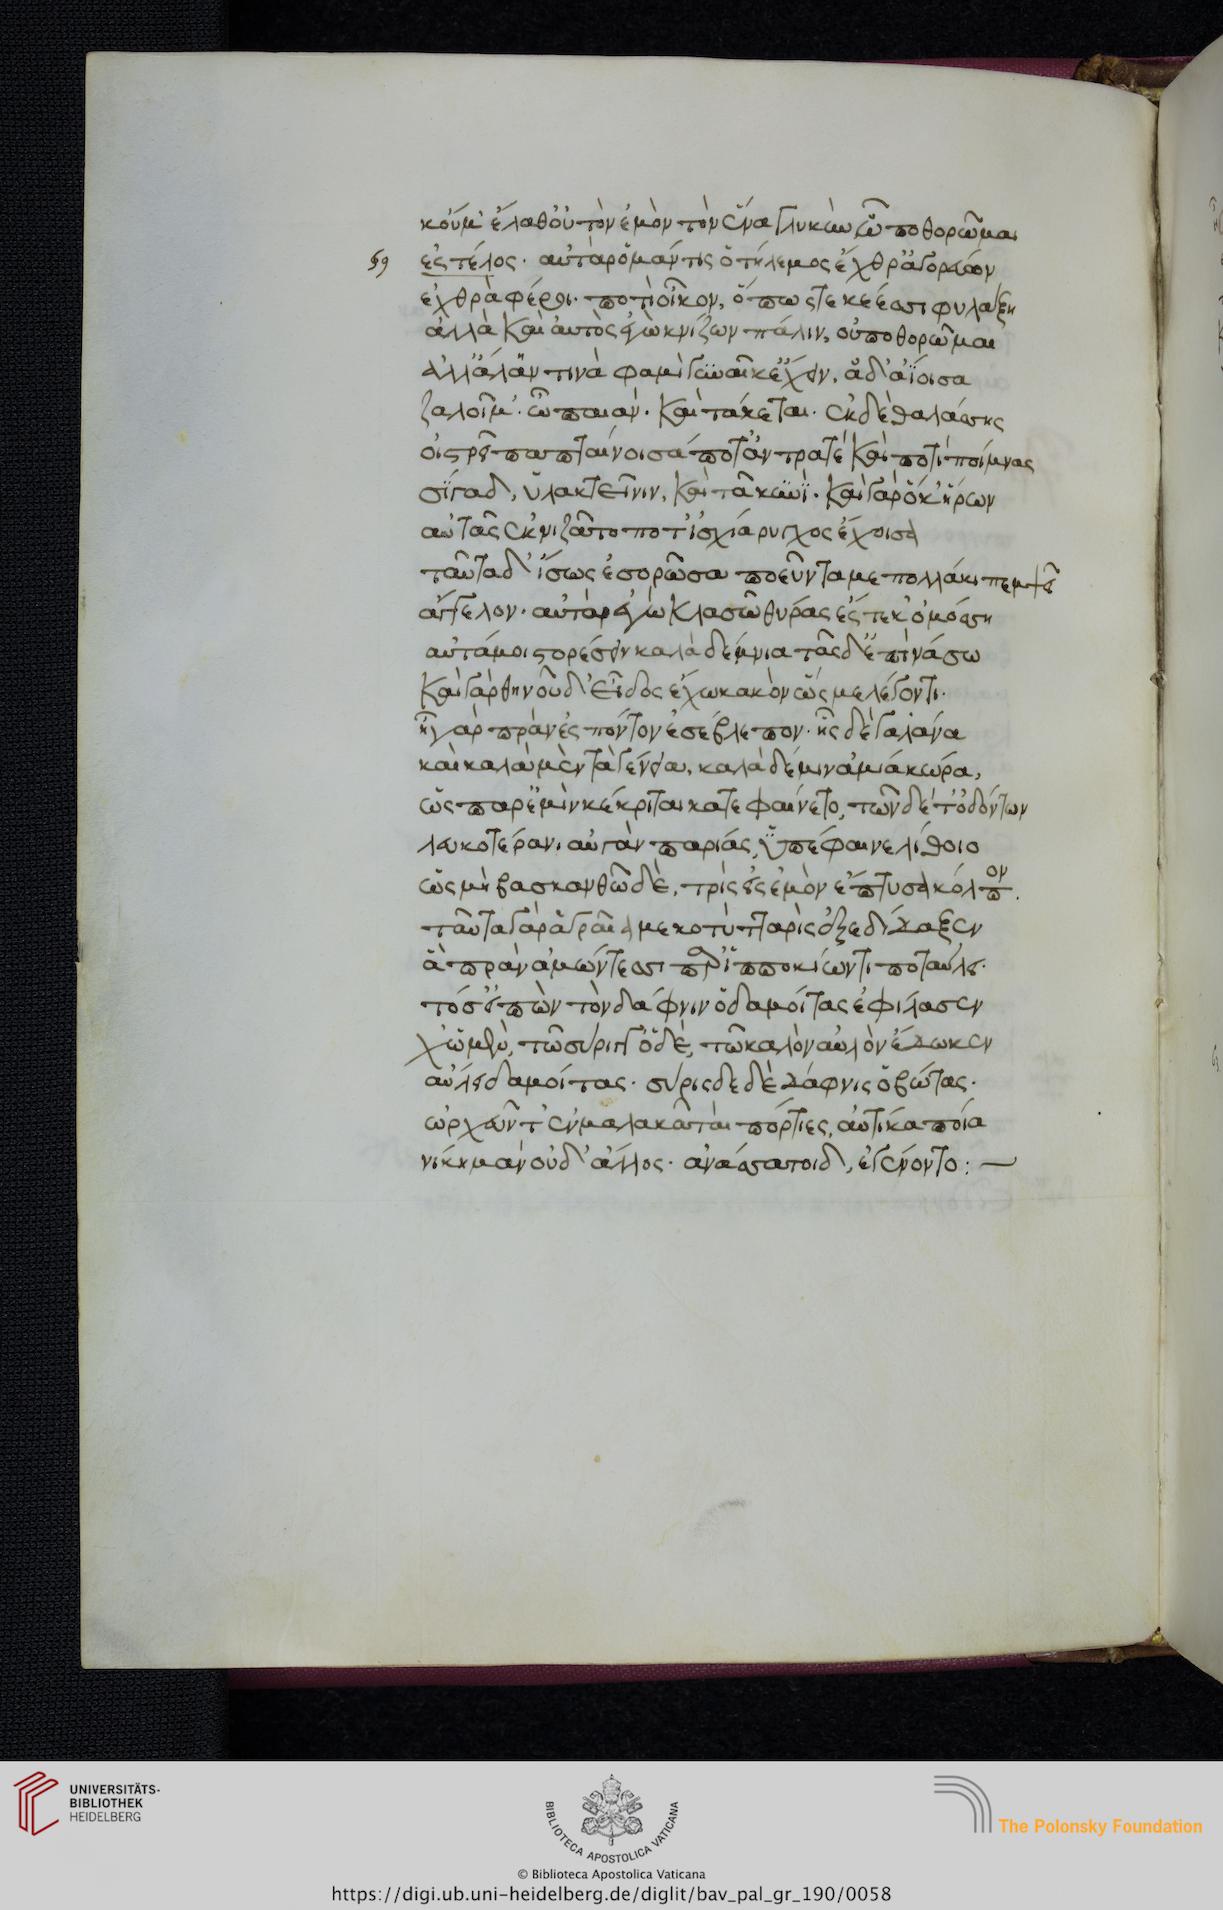 κοὔμ' ἔλαθ' οὐ τὸν ἐμὸν τὸν ἕνα γλυκὺν ᾧ ποθορῶμαι
59 ἐς τέλος. αὐτὰρ ὁ μάντις ὁ τήλεμος ἔχθρ' ἀγορεύων
ἐχθρὰ φέροι ποτὶ οἶκον, ὅπως τεκέεσσι φυλάξῃ
ἀλλὰ καὶ αὐτὸς ἐγὼ κνίζων πάλιν, οὐ ποθορῶμαι
ἀλλ' ἄλλαν τινὰ φαμὶ γυναῖκ' ἔχεν, ἁ δ' ἀΐοισα
ζαλοῖ μ' ὦ παιάν. καὶ τάκεται. ἐκ δὲ θαλάσσης
οἰστρεῖ παπταίνοισα ποτ' ἄντρα τε καὶ ποτὶ ποίμνας
σίγα δ' ὑλακτεῖν νιν, καὶ τᾷ κυνί. καὶ γὰρ ὅκ' ἤρων
αὐτᾶς ἐκνυζᾶτο ποτ' ἰσχία ῥύγχος ἔχοισα
ταῦτα δ' ἴσως ἐσορῶσα ποεῦντά με πολλάκι πεμψεῖ
ἄγγελον. αὐτὰρ ἐγὼ κλασῶ θύρας ἔς τέ κ' ὀμόσσῃ
αὐτά μοι στορέσειν καλὰ δέμνια τᾶσδ' ἐπὶ νάσω
καὶ γάρ θην οὐδ' εἶδος ἔχω κακὸν ὥς με λέγοντι.
ἦ γὰρ πρὰν ἐς πόντον ἐσέβλεπον. ἦς δὲ γαλάνα
καὶ καλὰ μὲν τὰ γένεια, καλὰ δέ μιν ἁ μία κώρα,
ὡς παρ' ἐμὶν κέκριται κατεφαίνετο, τῶν δέ τ' ὀδόντων
λευκοτέραν αὐγὰν παρίας, ὑπέφαινε λίθοιο
ὡς μὴ βασκανθῶ δὲ, τρὶς εἰς ἐμὸν ἔπτυσα κόλπον.
ταῦτα γὰρ ἁ γραία με κοτυτταρὶς ἐξεδίδαξεν
ἃ πρὰν ἀμώντεσσι παρ' ἱπποκίωντι ποταύλει.
τόσσ' εἰπὼν τὸν δάφνιν ὁ δαμοίτας ἐφίλασεν
χὠ μὲν, τῷ σύριγγ' ὁ δὲ, τῷ καλὸν αὐλὸν ἔδωκεν
αὔλει δαμοίτας. σύρισδε δὲ δάφνις ὁ βώτας.
ὠρχεῦντ' ἐν μαλακᾷ ταὶ πόρτιες, αὐτίκα ποίᾳ
νίκη μὰν οὐδ' ἄλλος. ἀνάσσατοι δ' ἐγένοντο:
UNIVERSITÄTS-
BIBLIOTHEK
HEIDELBERG
BIBLIOTECA APOSTOLICA VATICANA
The Polonsky Foundation
© Biblioteca Apostolica Vaticana
https://digi.ub.uni-heidelberg.de/diglit/bav_pal_gr_190/0058